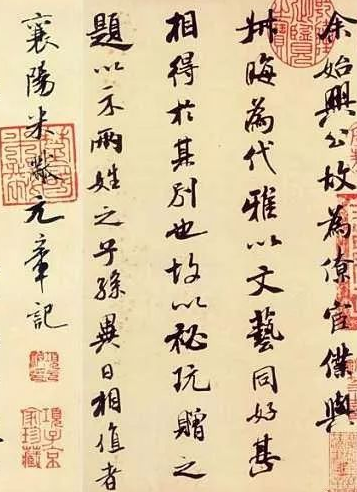 余始興公故為僚宦僕與
叔晦為代雅以文藝同好甚
相得於其別也故以秘玩贈之
題以示兩姓之子孫異日相值者
襄陽米黻元章記
項子京
家珍藏